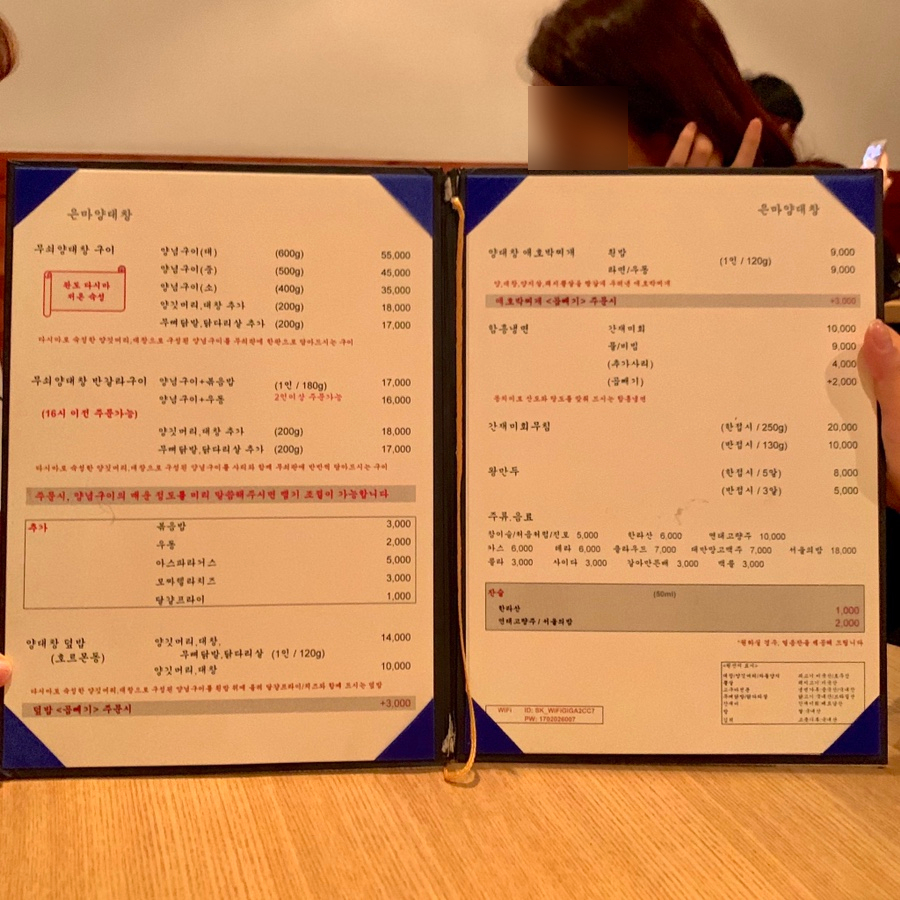 은마양대창
무쇠양대창 구이 양념구이(대) (600g) 55,000
양념구이(중) (500g) 45,000
완도 다시마
저온 숙성
양념구이(소) (400g) 35,000
양깃머리,대창 추가 (200g) 18,000
무뼈닭발,닭다리살 추가 (200g) 17,000
다시마로 숙성한 양깃머리,대창으로 구성된 양념구이를 무쇠판에 한판으로 담아드시는 구이
무쇠양대창 반갈라구이 양념구이+볶음밥 (1인 / 180g) 17,000
양념구이+우동 2인이상 주문가능 16,000
(16시 이전 주문가능)
양깃머리,대창 추가 (200g) 18,000
무뼈닭발,닭다리살 추가 (200g) 17,000
다시마로 숙성한 양깃머리,대창으로 구성된 양념구이를 사리와 함께 무쇠판에 반반씩 담아드시는 구이
주문시, 양념구이의 매운 정도를 미리 말씀해주시면 맵기 조절이 가능합니다
추가 볶음밥 3,000
우동 2,000
아스파라거스 5,000
모짜렐라치즈 3,000
달걀프라이 1,000
양대창 덮밥 양깃머리,대창, 14,000
(호르몬동) 무뼈닭발,닭다리살 (1인 / 120g)
양깃머리,대창 10,000
다시마로 숙성한 양깃머리,대창으로 구성된 양념구이를 흰밥 위에 올려 달걀프라이/치즈와 함께 드시는 덮밥
덮밥 <곱빼기> 주문시 +3,000
은마양대창
양대창 애호박찌개 흰밥 (1인 / 120g) 9,000
라면/우동 9,000
애호박찌개 <곱빼기> 주문시 +3,000
함흥냉면 간재미회 10,000
물/비빔 9,000
(추가사리) 4,000
(곱빼기) +2,000
동치미로 산도와 당도를 맞춰 드시는 함흥냉면
간재미회무침 (한접시 / 250g) 20,000
(반접시 / 130g) 10,000
왕만두 (한접시 / 5알) 8,000
(반접시 / 3알) 5,000
주류,음료
참이슬/처음처럼/진로 5,000 한라산 6,000 연태고량주 10,000
카스 6,000 테라 6,000 클라우드 7,000 대만망고맥주 7,000 서울의밤 18,000
콜라 3,000 사이다 3,000 갈아만든배 3,000 맥콜 3,000
잔술 (50ml)
한라산 1,000
연태고량주 / 서울의밤 2,000
*원하실 경우, 얼음잔을 제공해 드립니다
<원산지 표시>
WiFi ID: SK_WiFiGIGA2CC7
PW: 1702026007